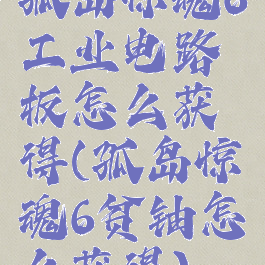 孤岛惊魂6
工业电路
板怎么获
得(孤岛惊
魂6贫铀怎
么获得)